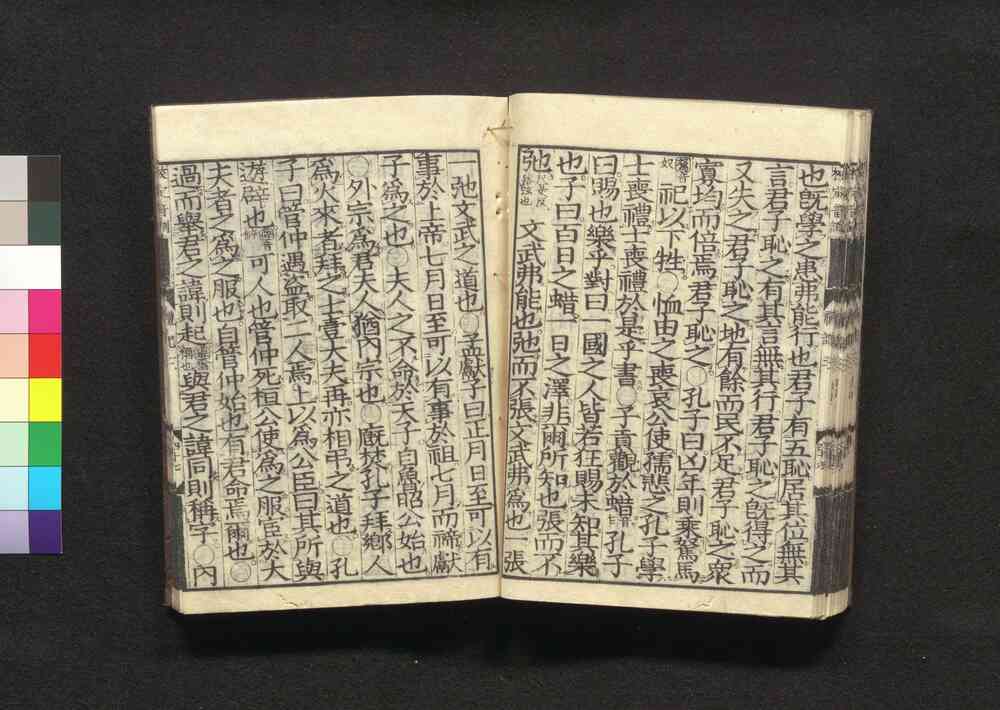 也既學之患弗能行也君子有五恥居其位無其
言君子恥之有其言無其行君子恥之既得之而
又失之君子恥之地有餘而民不足君子恥之衆
寡均而倍焉君子恥之○孔子曰凶年則乗駑馬
駑音奴祀以下牲○恤由之喪哀公使孺悲之孔子學
士喪禮士喪禮於是乎書○子貢觀於蜡孔子
曰賜也樂乎對曰一國之人皆若狂賜未知其樂
也子曰百日之蜡一日之澤非爾所知也張而不
弛文武弗能也弛而不張文武弗爲也一張
一弛文武之道也○孟獻子曰正月日至可以有
事於上帝七月日至可以有事於祖七月而禘獻
子爲之也○夫人之不命於天子自魯昭公始也
○外宗爲君夫人猶內宗也○廐焚孔子拜鄉人
爲火來者拜之士壹大夫再亦相弔之道也○孔
子曰管仲遇盜取二人焉上以爲公臣曰其所與
遊辟也可人也管仲死桓公使爲之服宦於大
夫者之爲之服也自管仲始也有君命焉爾也○
過而舉君之諱則起與君之諱同則稱字○內